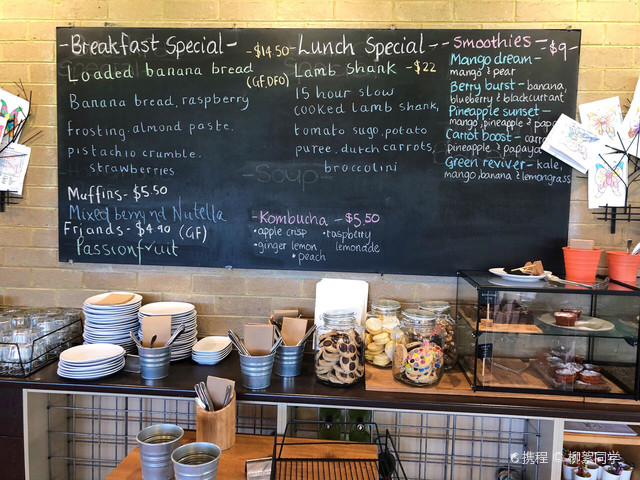 -Breakfast Special-
-$14.50-
Loaded banana bread
(GF,DFO)
Banana bread, raspberry
frosting, almond paste.
pistachio crumble.
strawberries
Muffins- $5.50
Mixed berry nd Nutella
Friands- $4.40 (GF)
Passionfruit
Lunch Special-
Lamb shank -$22
15 hour slow
cooked lamb shank,
tomato sugo, potato
puree, dutch carrots,
broccolini
-Soup-
-Kombucha -$5.50
•apple crisp •raspberry
•ginger lemon, lemonade
•peach
-Smoothies-
-$9-
Mango dream-
mango & pear
Berry burst- banana,
blueberry & blackcurrant
Pineapple sunset-
mango, pineapple & papa
Carrot boost- carro
pineapple & papaya
Green reviver- kale,
mango, banana & lemongrass
携程 © 柳絮同学